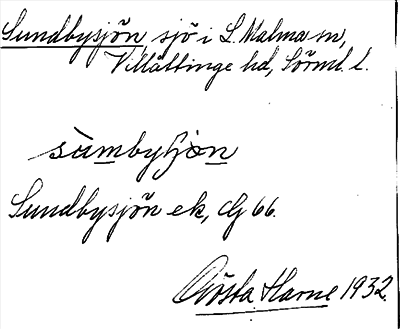 Sundbysjön, sjö i L. Malma sn,
Villåttinge hd, Sörml. l.
sùmbyʃjön
Sundbysjön ek, G 66.
Gösta Harne 1932.